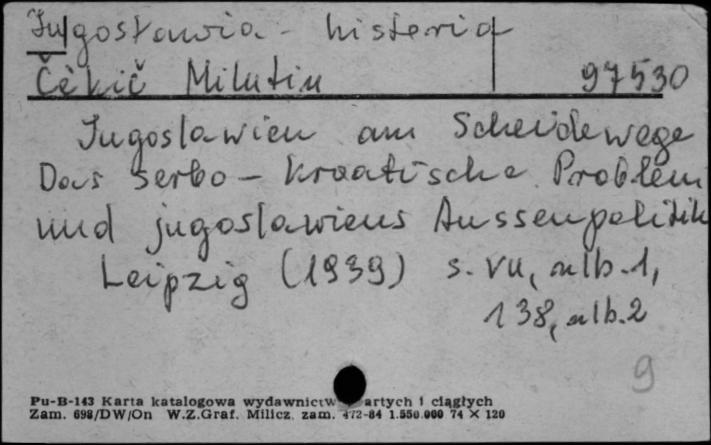 Jugosławia - historia
Čekič Milutin 97530
Jugoslawien am Scheidewege
Das serbo-kroatische Problem
und jugoslawiens Aussenpolitik
Leipzig (1939) s. VII, nlb. 1,
138, nlb. 2
9
Pu-B-143 Karta katalogowa wydawnictw artych i ciągłych
Zam. 698/DW/On W.Z.Graf. Milicz. zam. 472-84 1.550.000 74 X 120